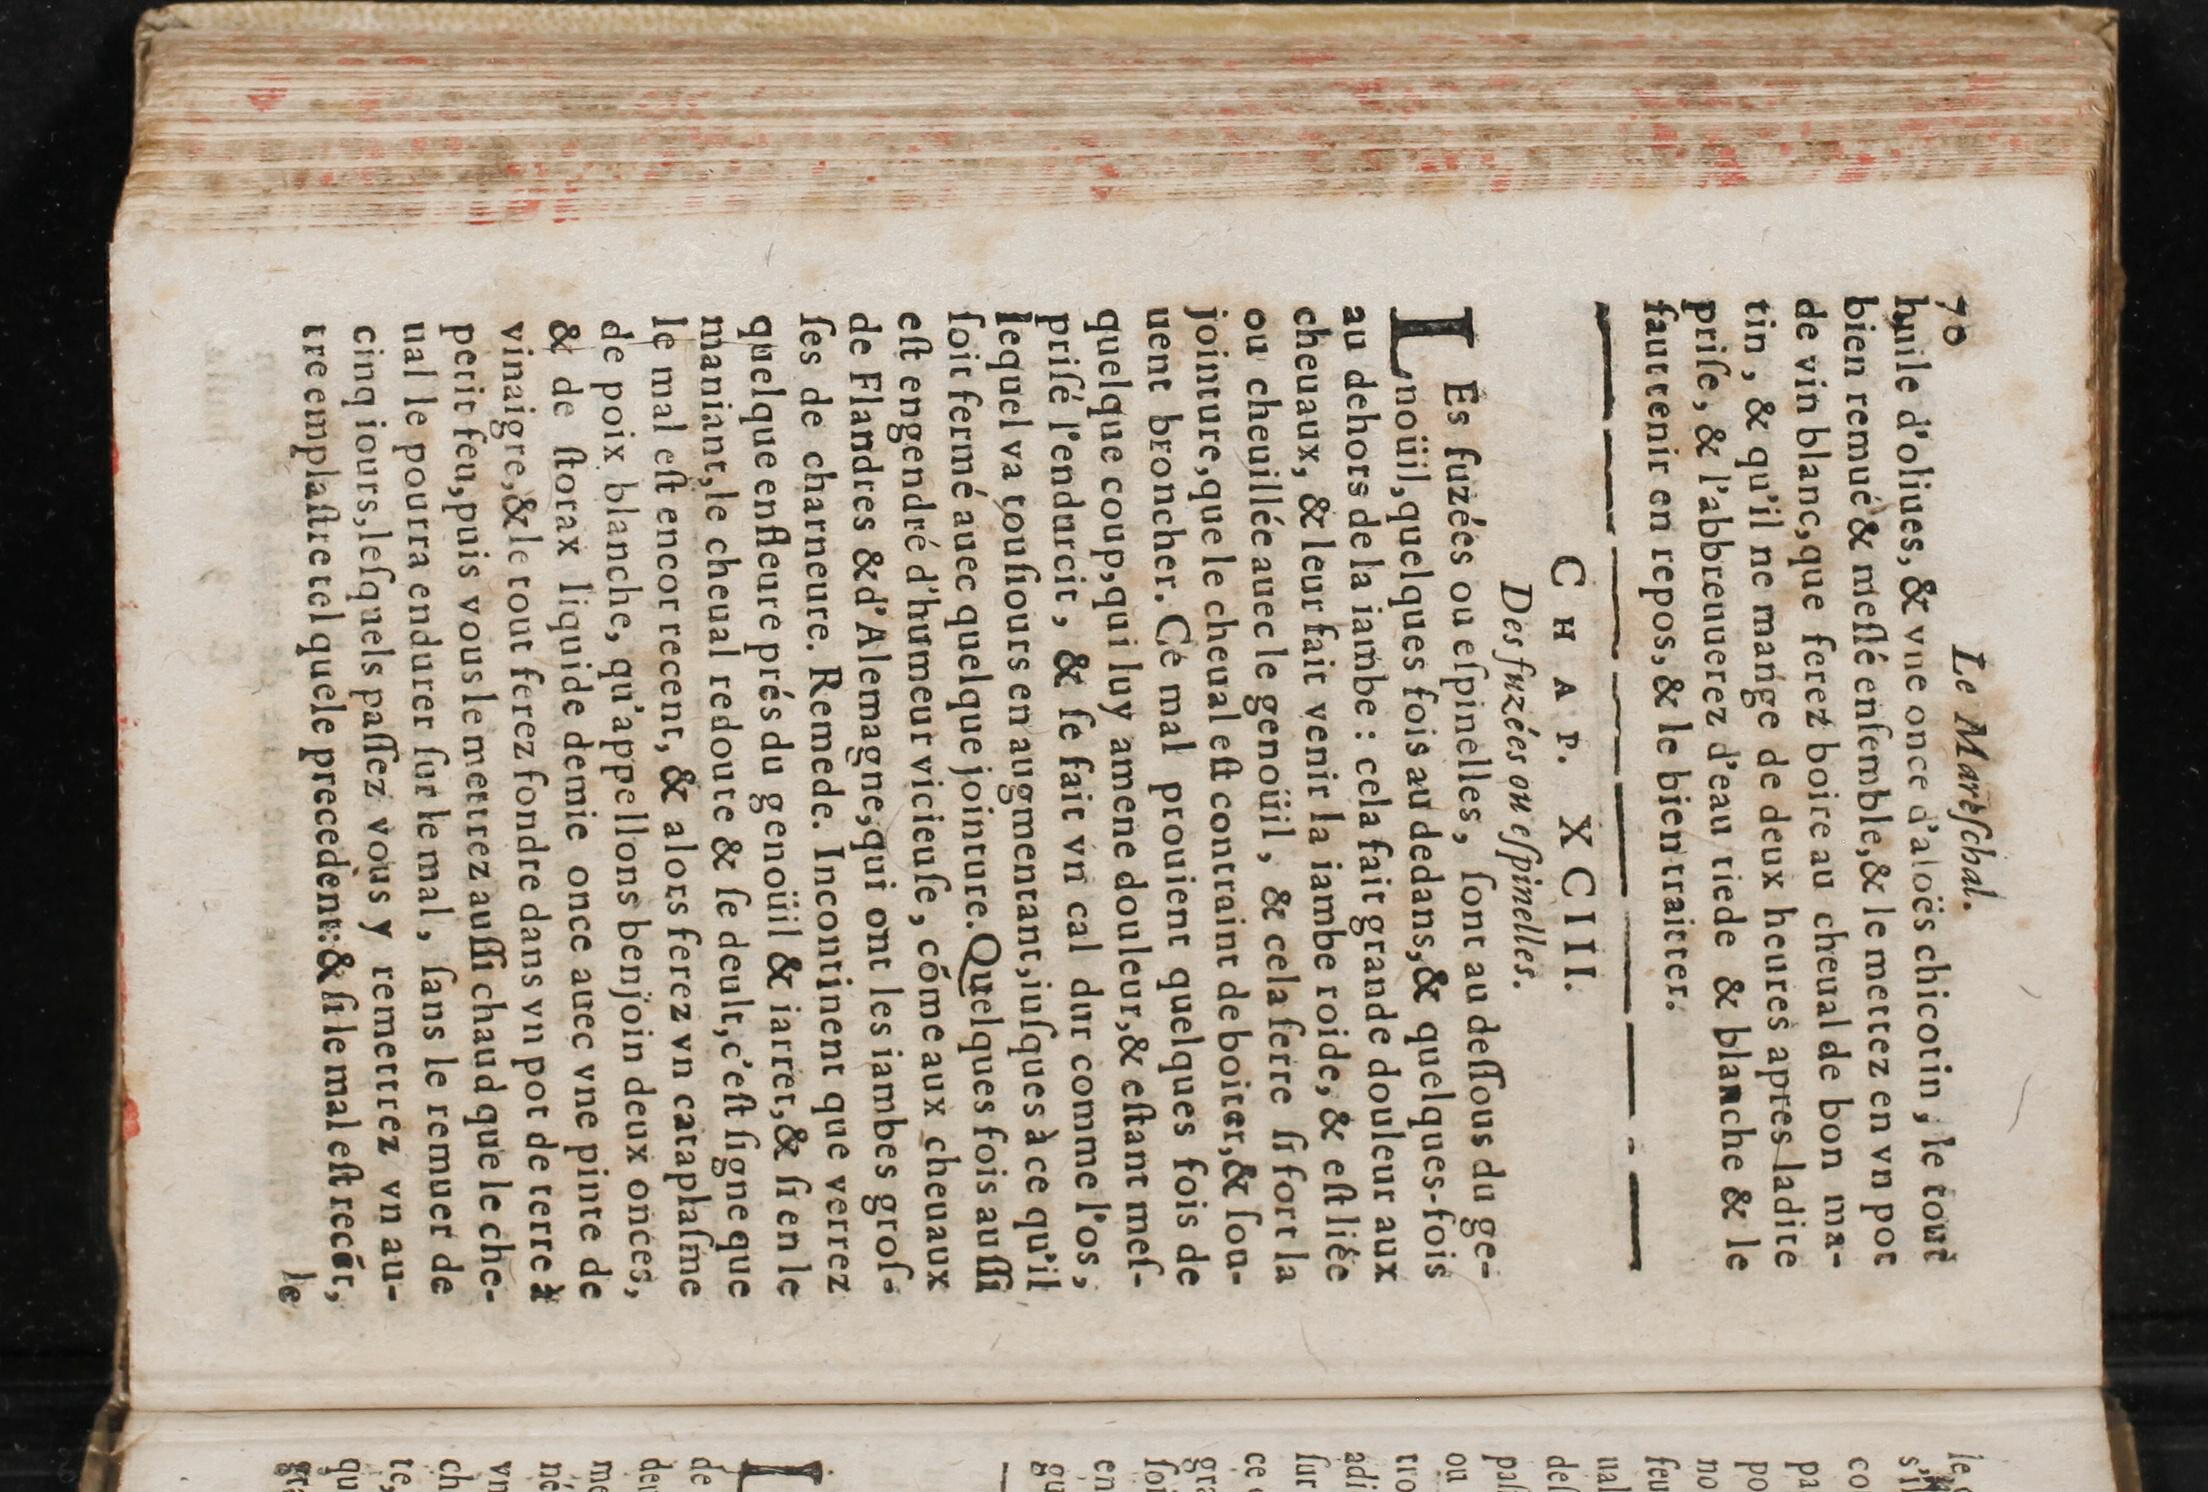 70 Le Mareſchal.
huile d'oliues, & vne once d'aloës chicotin, le tout
bien remué & meſlé enſemble, & le mettez en vn pot
de vin blanc, que ferez boire au cheual de bon ma-
tin, & qu'il ne mange de deux heures apres ladite
priſe, & l'abbreuuerez d'eau tiede & blanche & le
faut tenir en repos, & le bien traitter.
CHAP. XCIII.
Des fuzées ou eſpinelles.
LEs fuzées ou eſpinelles, ſont au deſſous du ge-
noüil, quelques fois au dedans, & quelques-fois
au dehors de la iambe : cela fait grande douleur aux
cheuaux, & leur fait venir la iambe roide, & eſt liée
ou cheuillée auec le genoüil, & cela ſerre ſi fort la
jointure, que le cheual eſt contraint de boiter, & ſou-
uent broncher. Ce mal prouient quelques fois de
quelque coup, qui luy amene douleur, & eſtant meſ-
priſé l'endurcit, & ſe fait vn cal dur comme l'os,
lequel va touſiours en augmentant, iuſques à ce qu'il
ſoit fermé auec quelque jointure. Quelques fois auſſi
eſt engendré d'humeur vicieuſe, cõme aux cheuaux
de Flandres & d'Alemagne, qui ont les iambes groſ-
ſes de charneure. Remede. Incontinent que verrez
quelque enfleure prés du genoüil & iarret, & ſi en le
maniant, le cheual redoute & ſe deult, c'eſt ſigne que
le mal eſt encor recent, & alors ferez vn cataplaſme
de poix blanche, qu'appellons benjoin deux onces,
& de ſtorax liquide demie once auec vne pinte de
vinaigre, & le tout ferez fondre dans vn pot de terre à
petit feu, puis vous le mettrez auſſi chaud que le che-
ual le pourra endurer ſur le mal, ſans le remuer de
cinq iours, leſquels paſſez vous y remettrez vn au-
tre emplaſtre tel que le precedent: & ſi le mal eſt recẽt,
le